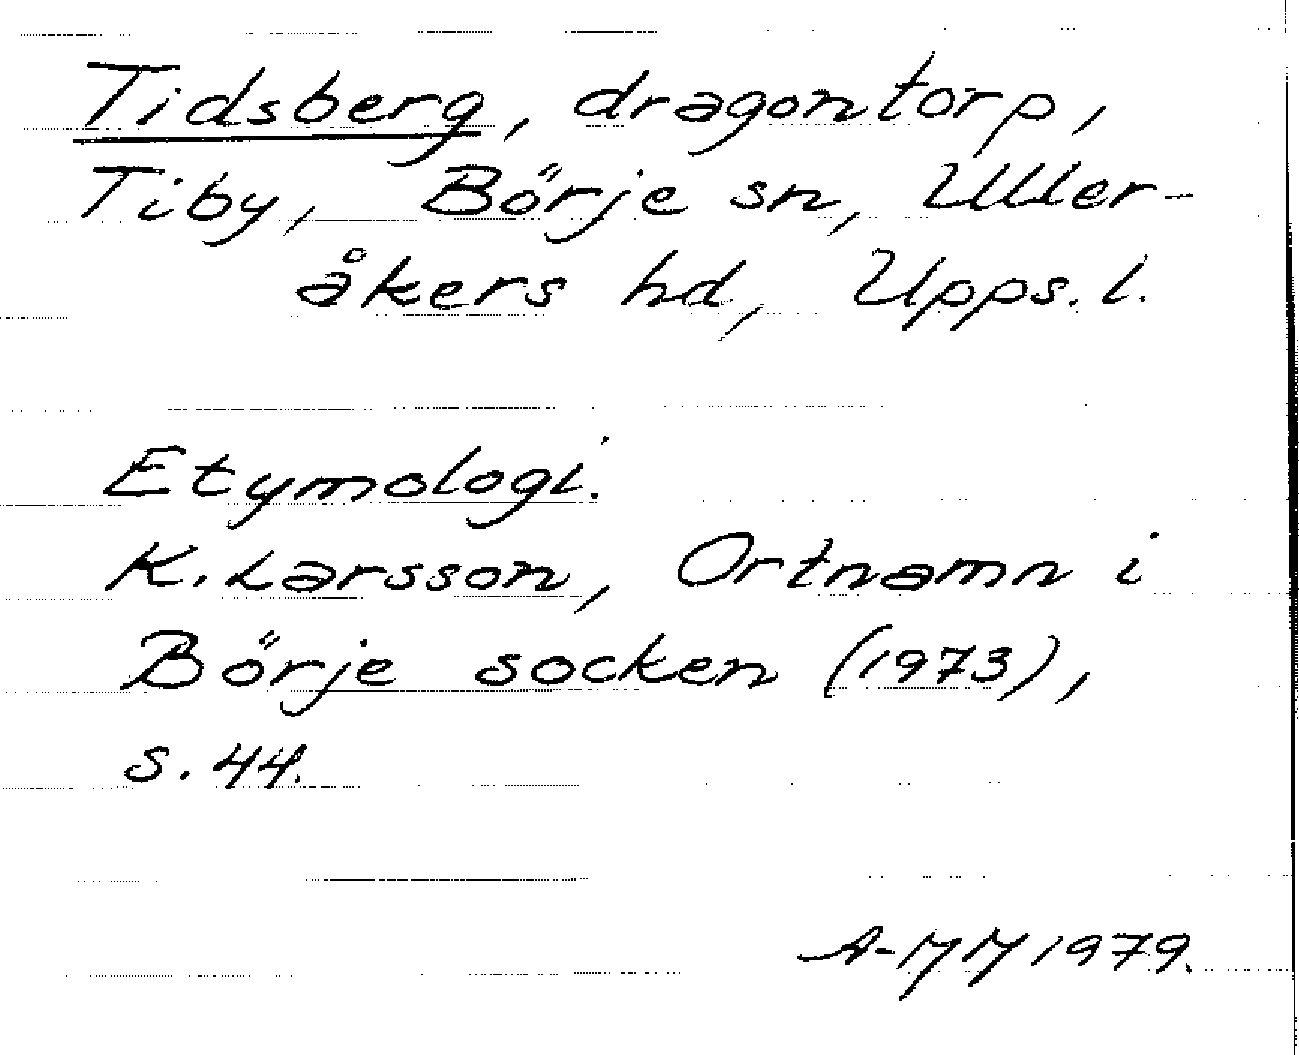 Tidsberg, dragontorp,
Tiby, Börje sn, Uller-
åkers hd, Upps. l.
Etymologi.
K. Larsson, Ortnamn i
Börje socken (1973),
s. 44.
A-MM 1979.